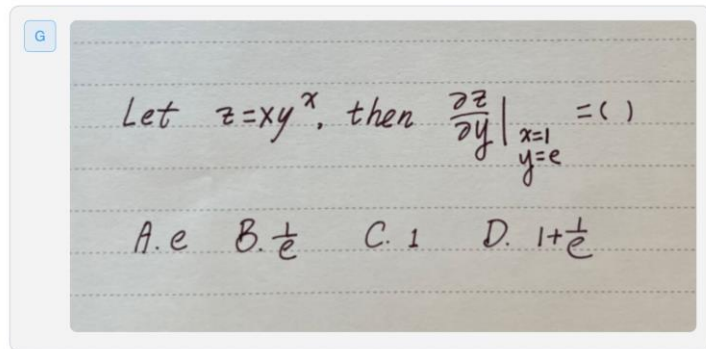 G
Let z=xy^x, then ∂z/∂y | x=1 y=e =( )
A. e B. 1/e C. 1 D. 1+1/e